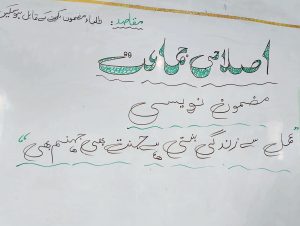 مقاصد: طلماء مضمون لکھنے کے قابل ہو سکیں
اصلاحی جماعت
مضمون نویسی
"عمل سے زندگی بنتی ہے جنت بھی جہنم بھی"